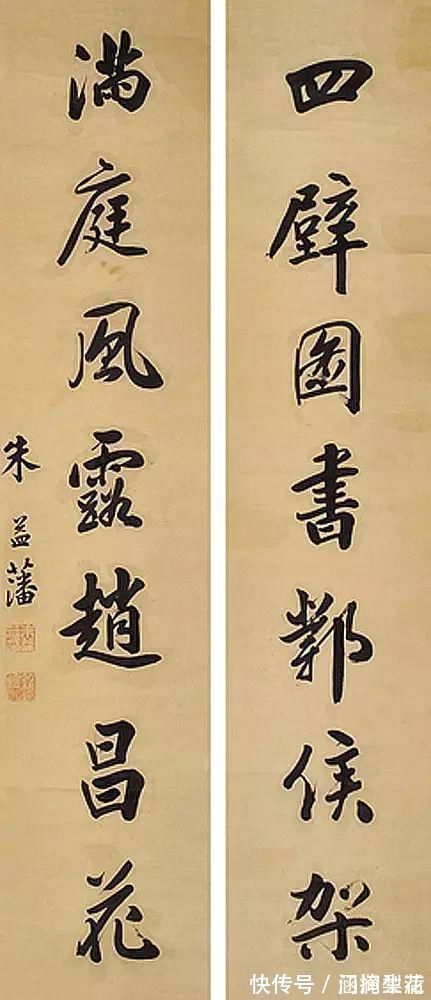 四壁圖書鄴侯架
滿庭風露趙昌花
朱益藩
快传号／